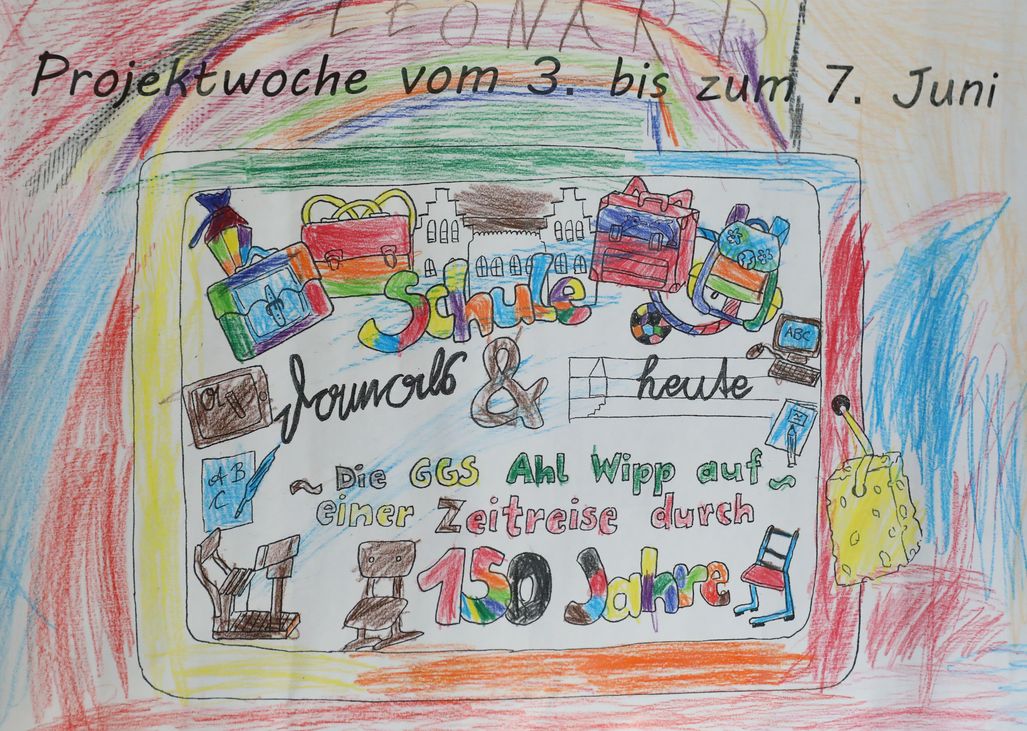 LEONARD
Projektwoche vom 3. bis zum 7. Juni
Schule
damals & heute
ABC
A B
C
~ Die GGS Ahl Wipp auf ~
einer Zeitreise durch
150 Jahre